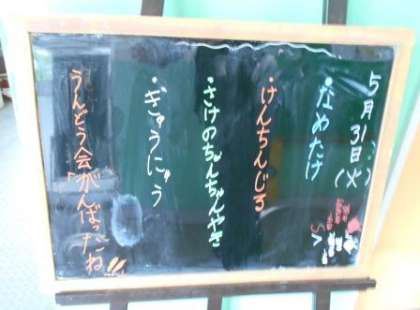 5月31日(火)
・なめたけ
・けんちんじる
・さけのちゃんちゃんやき
・ぎゅうにゅう
うんどう会がんばったね